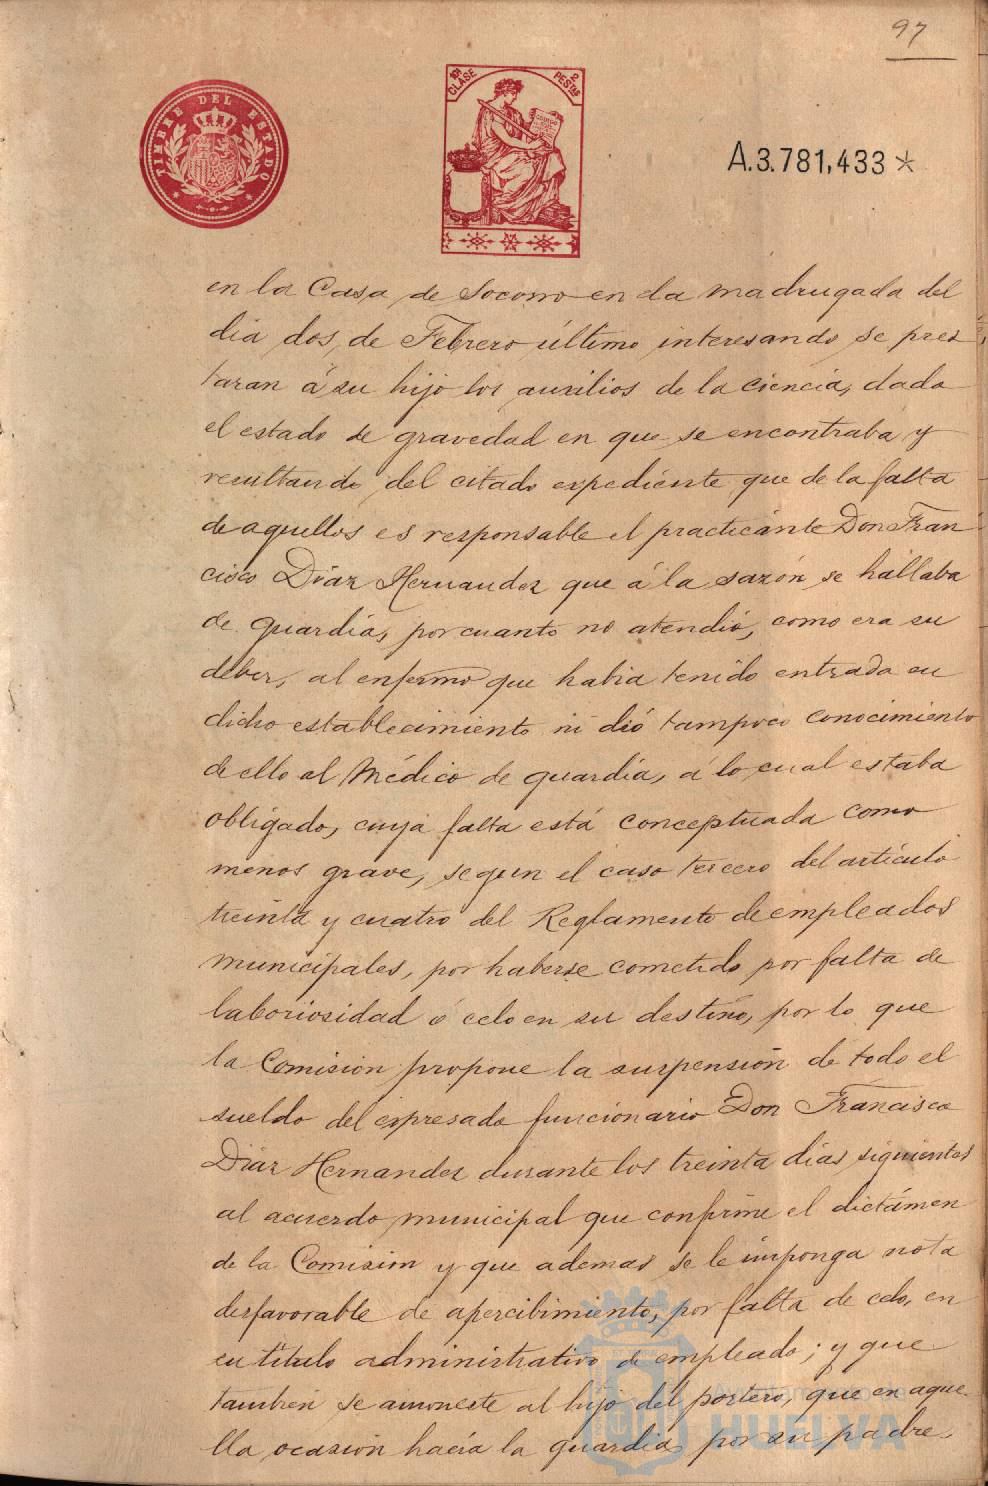 97
TIMBRE DEL ESTADO
10ª CLASE
2 PESTAS
A.3.781,433*
en la Casa de Socorro en la madrugada del
dia dos, de Febrero último interesando se pres
taran á su hijo los auxilios de la ciencia, dada
el estado de gravedad en que se encontraba y
resultando del citado expediente que de la falta
de aquellos es responsable el practicante Don Fran
cisco Diaz Hernandez que á la sazón se hallaba
de guardia, por cuanto no atendió, como era su
deber, al enfermo que habia tenido entrada en
dicho establecimiento ni dió tampoco conocimiento
de ello al Médico de guardia, á lo cual estaba
obligado, cuya falta está conceptuada como
menos grave, segun el caso tercero del articulo
treinta y cuatro del Reglamento de empleados
municipales, por haberse cometido por falta de
laboriosidad ó celo en su destino, por lo que
la Comision propone la suspensión de todo el
sueldo del expresado funcionario Don Francisco
Diaz Hernandez durante los treinta dias siguientes
al acuerdo municipal que confirme el dictámen
de la Comision y que ademas se le imponga nota
desfavorable de apercibimiento, por falta de celo, en
su titulo administrativo de empleado; y que
tambien se amoneste al hijo del portero, que en aque
lla ocasión hacía la guardia por su padre,
Ayuntamiento de
HUELVA